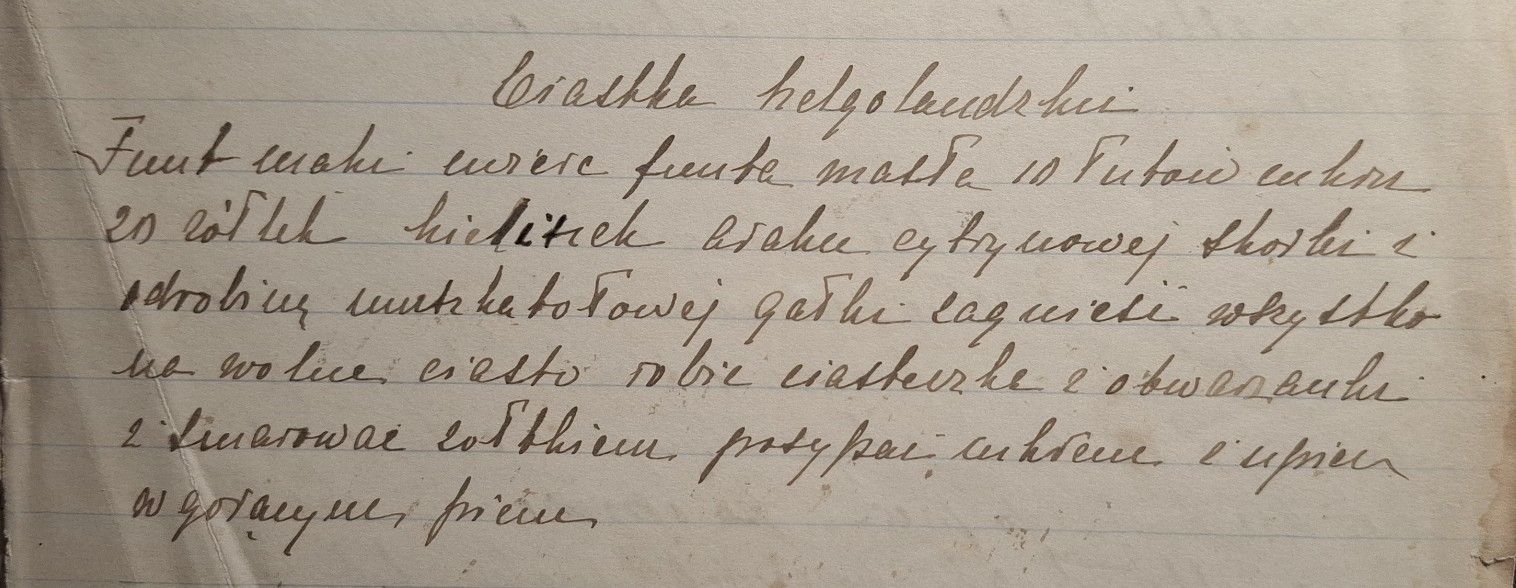 Ciastka helgolandzki
Funt maki ćwierc funta masła 10 łutów cukru
20 zółtek kieliszek araku cytrynowej skorki i
odrobiną muszkatołowej gałki zagnieść wszystko
na wolne ciasto robic ciasteczka i obwarzanki
i smarowac zołtkiem posypać cukrem i upiec
w gorącym piecu